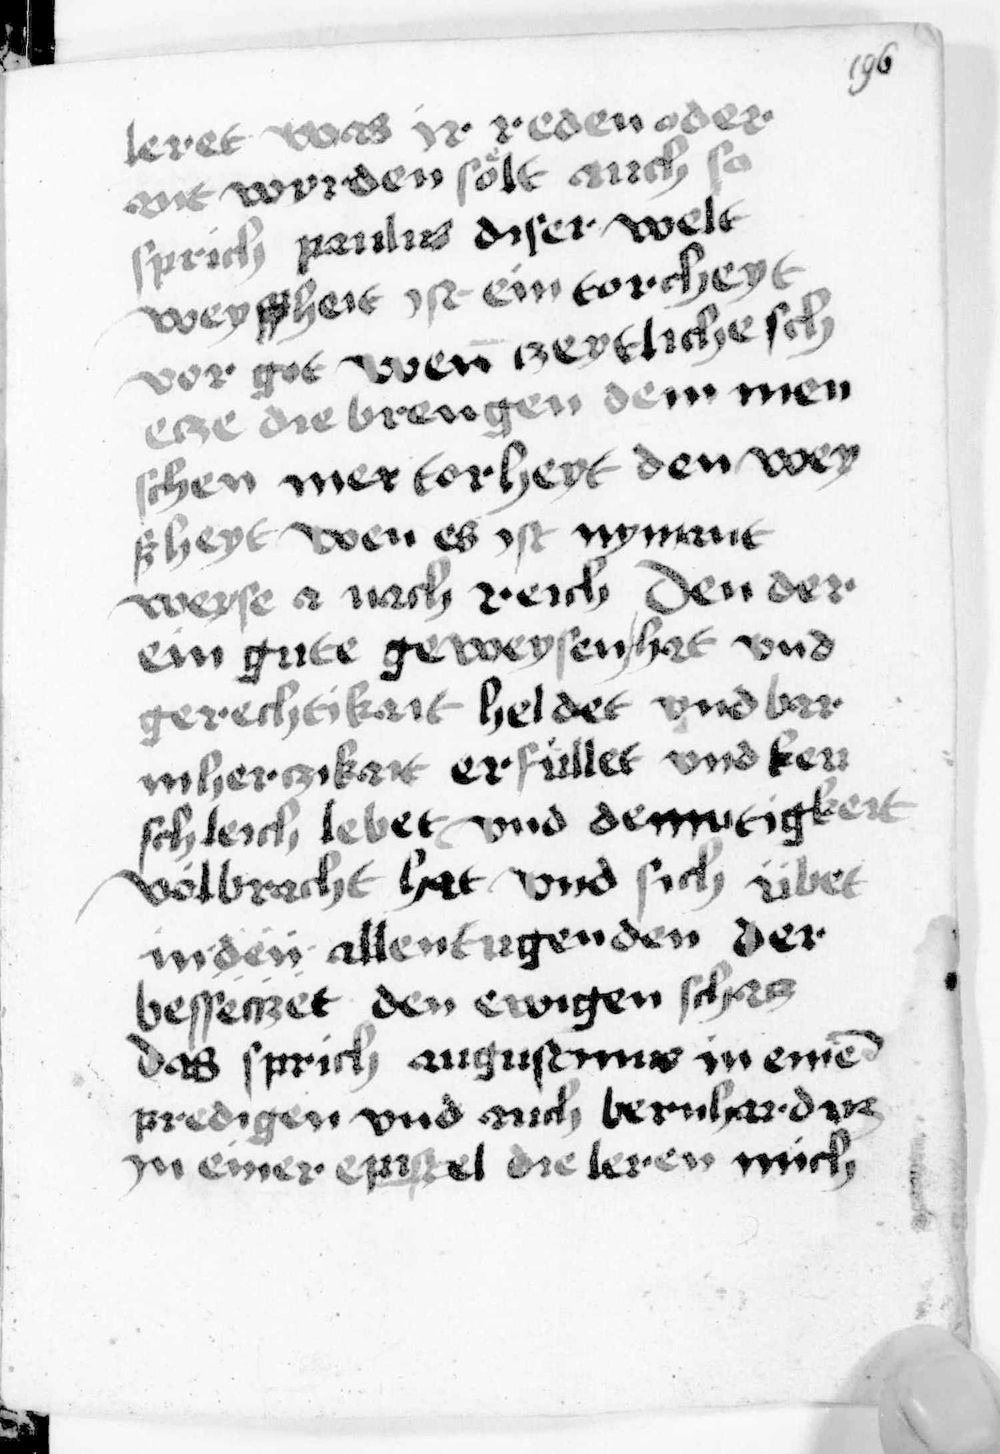 196
leret was ir reden oder
ant wurden sölt auch so
sprich paulus diser welt
weyßheit ist ein torcheyt
vor got wen̄ czeytliche sch
ecze die brengen dem men
schen mer torheyt den wey
ßheyt wen es ist nymant
weyse a nach reich Den der
ein gute geweysen hat vnd
gerechtikait heldet vnd bar
mherczikait erfüllet vnd keu
schleich lebet vnd demutigkeit
volbracht hat vnd sich übet
in den allen tugenden der
besseczet den ewigen schacz
das sprich augustinus in einē
predigen vnd auch bernhardus
in einer epistel die leren mich